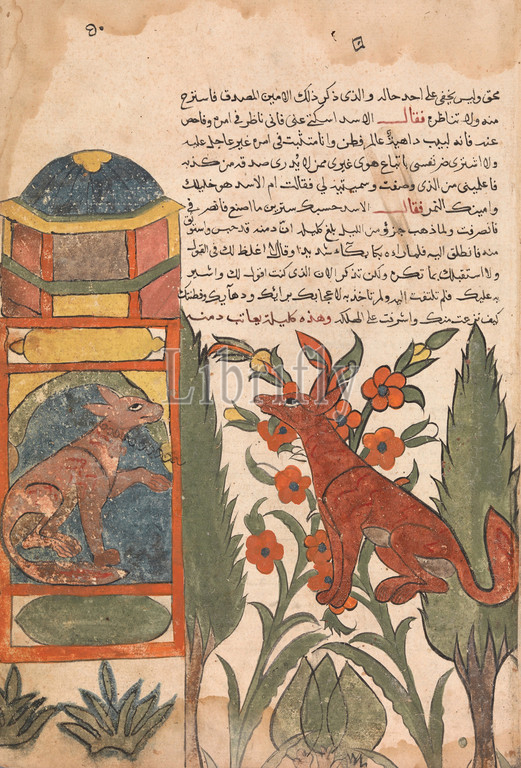 محق وليس يخفى على احد حاله والذى ذكر ذلك الامين المصدق فاستزح
منه ولا تناظره فقال الاسد اسكتى عنى فانى ناظر فى امره وفاحص
عنه فانه لبيب داهية عالم فطن وانا متثبت فى امره غير عاجل عليه
ولا اشترى ضر نفسى اتباع هوى غيرى من لا يدرى صدقه من كذبه
فاعلمينى من الذى وصفت وسميتيه لى فقالت ام الاسد هو خليلك
وامينك النمر فقال الاسد حسبك سترين ما اصنع فانصرفى
فانصرفت ولما ذهب جزؤ من الليل بلغ كليلة ان دمنه قد حبس واستوثق
منه فانطلق اليه فلما راه بكا بكاء شديدا وقال لا اغلظ لك فى القول
ولا استقبلك بما تكره ولكن تذكر الان الذى كنت اقول لك واشير
به عليك فلم تلتفت اليه ولم تاخذ به لاعجابك برايك ودهايك وفطنتك
كيف نزعت منك واشرفت على الهلكه وهذه كليلة يعاتب دمنه
Librifly